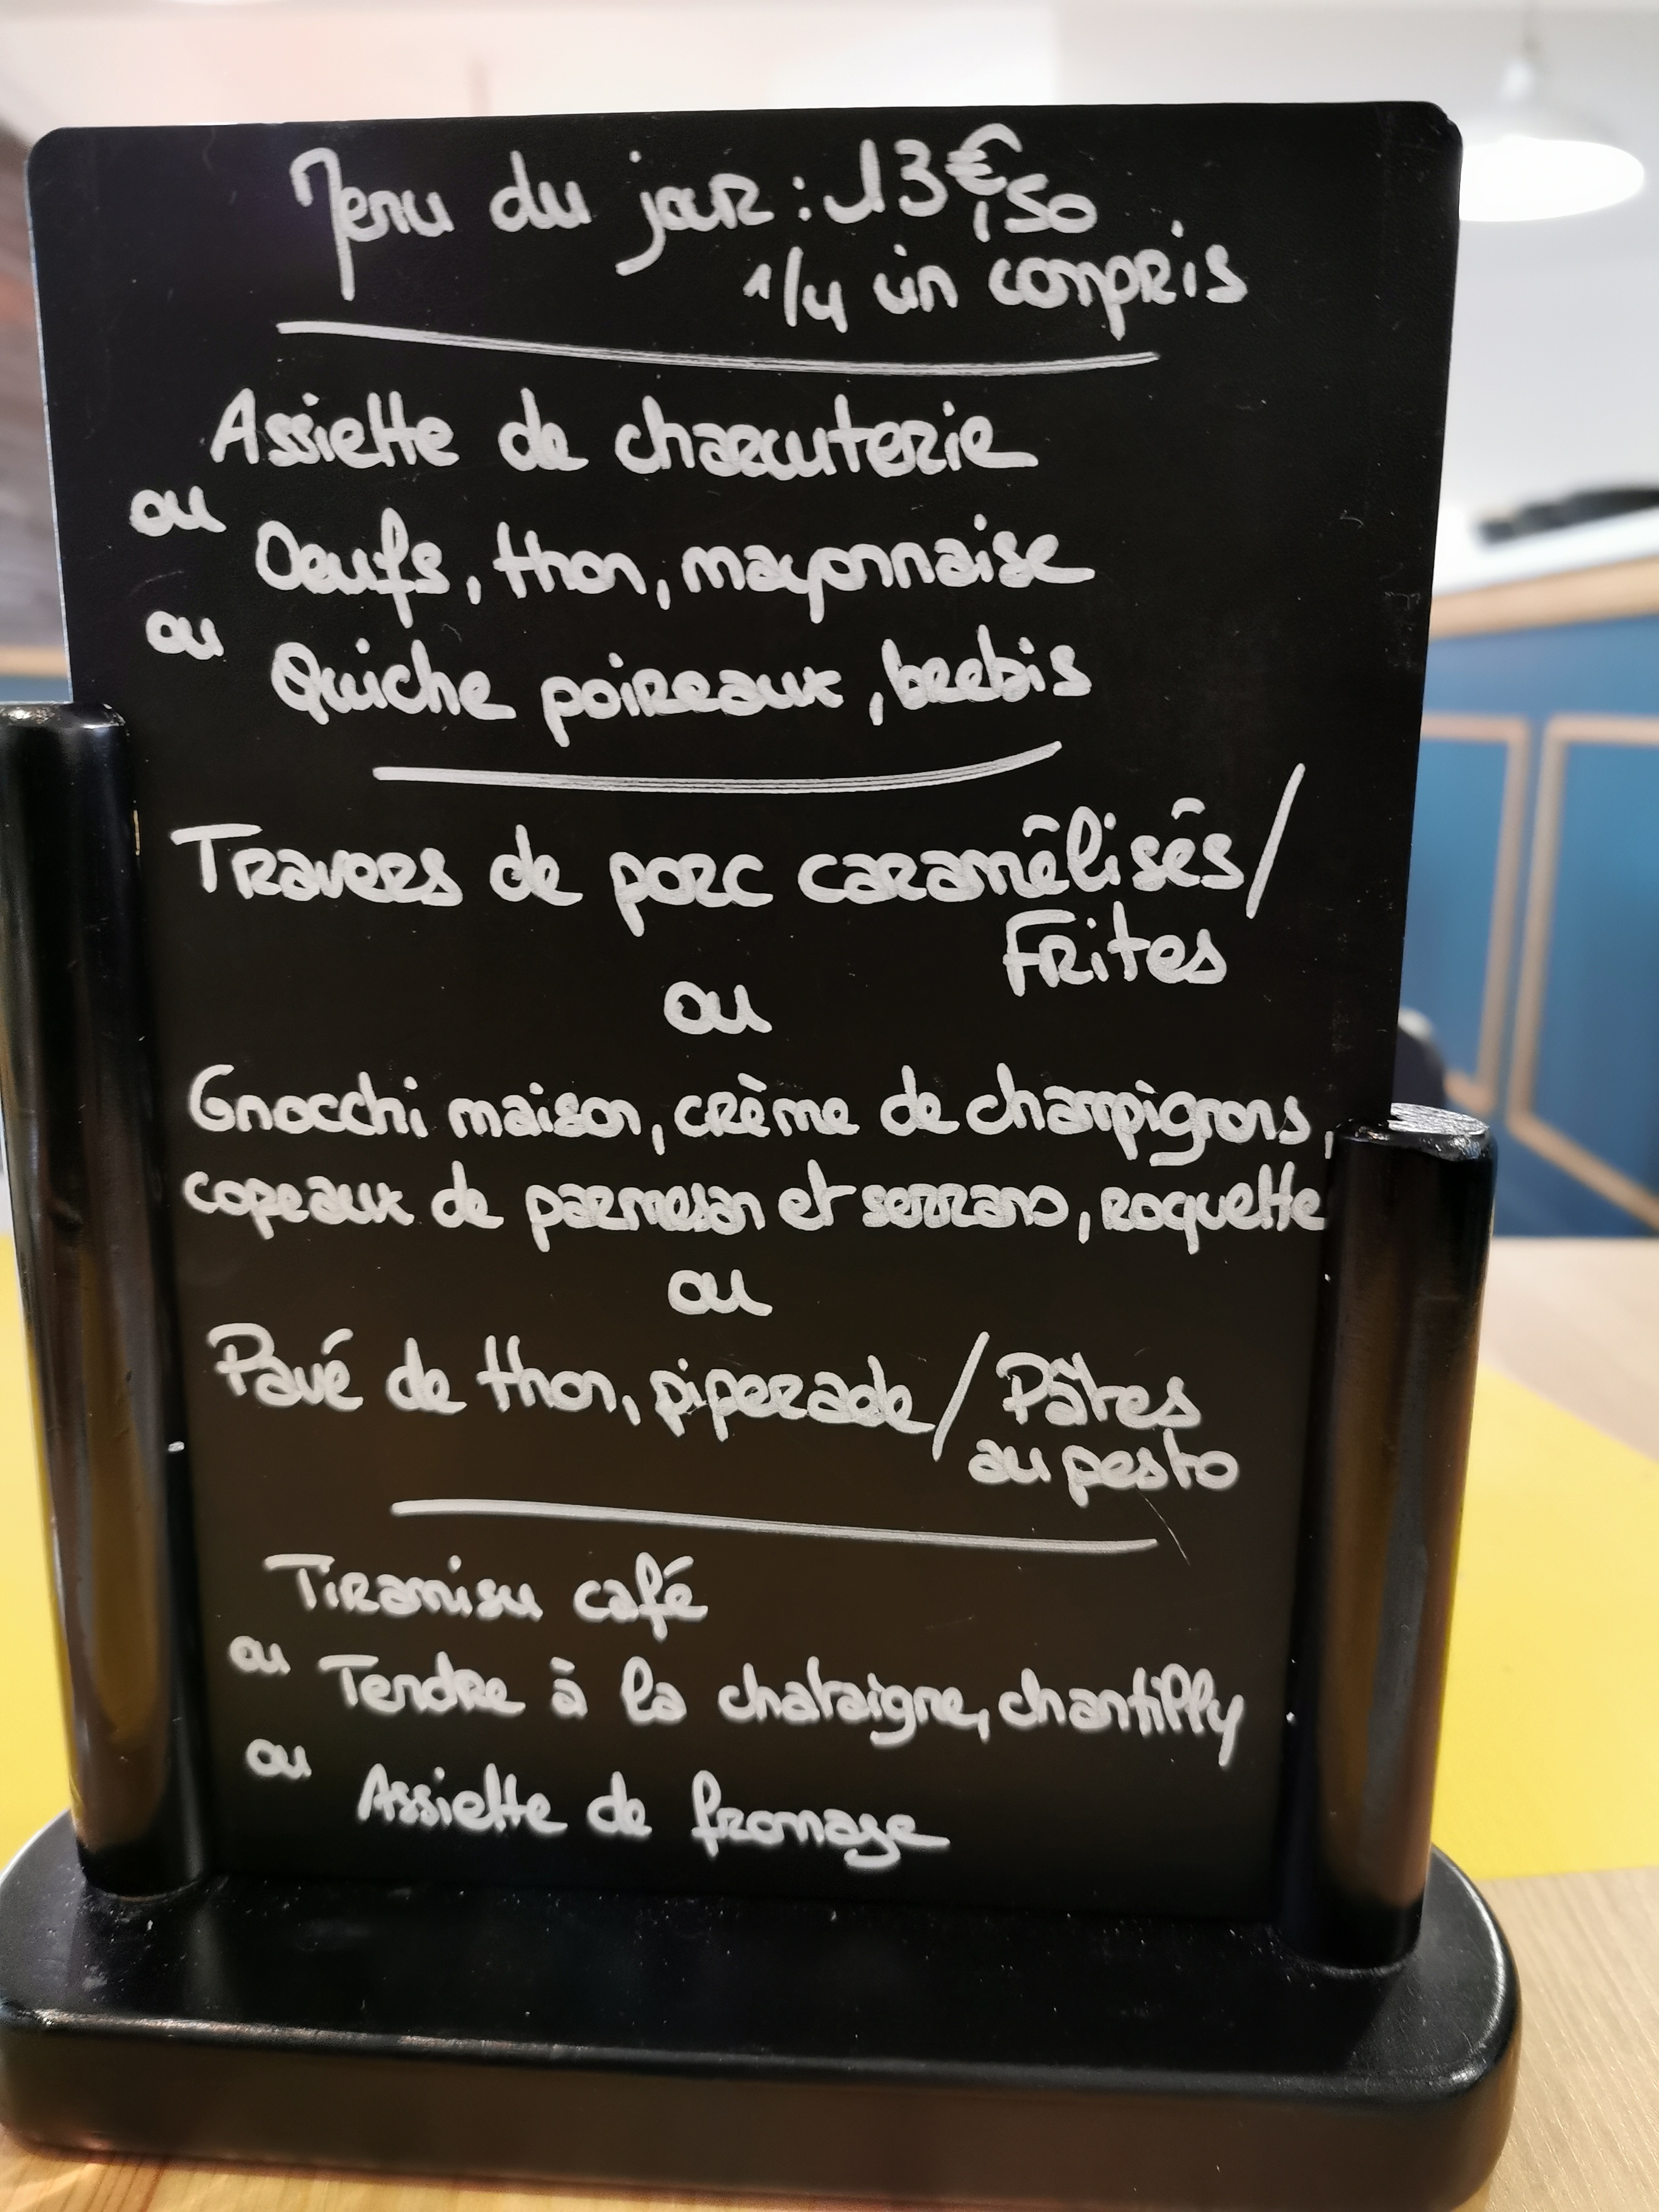 Menu du jour : 13€,50
1/4 vin compris
Assiette de charcuterie
ou
Oeufs, thon, mayonnaise
ou
Quiche poireaux, brebis
Travers de porc caramêlisês/
Frites
ou
Gnocchi maison, crème de champignons,
copeaux de parmesan et serrano, roquette
ou
Pavé de thon, piperade/Pâtes
au pesto
Tiramisu café
ou
Tendre à la chataigne, chantilly
ou
Assiette de fromage